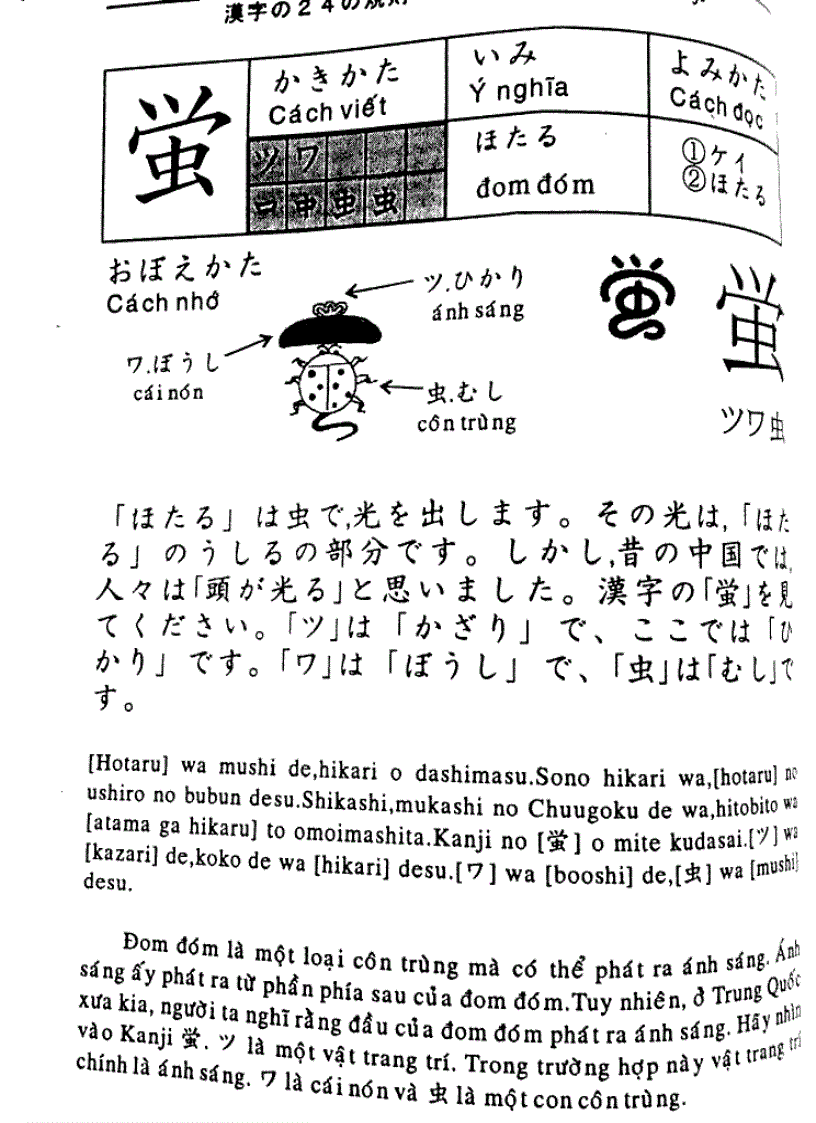 漢字の24の規則
蛍
かきかた
Cách viết
いみ
Ý nghĩa
よみかた
Cách đọc
ツ ワ
虫 虫
ほたる
đom đóm
①ケイ
②ほたる
おぼえかた
Cách nhớ
ツ.ひかり
ánh sáng
ワ.ぼうし
cái nón
虫.むし
côn trùng
蛍
ツワ虫
「ほたる」は虫で,光を出します。その光は,「ほた
る」のうしるの部分です。しかし,昔の中国では,
人々は「頭が光る」と思いました。漢字の「蛍」を見
てください。「ツ」は「かざり」で、ここでは「ひ
かり」です。「ワ」は「ぼうし」で、「虫」は「むし」で
す。
[Hotaru] wa mushi de,hikari o dashimasu.Sono hikari wa,[hotaru] no
ushiro no bubun desu.Shikashi,mukashi no Chuugoku de wa,hitobito wa
[atama ga hikaru] to omoimashita.Kanji no [蛍] o mite kudasai.[ツ] wa
[kazari] de,koko de wa [hikari] desu.[ワ] wa [booshi] de,[虫] wa [mushi]
desu.
Đom đóm là một loại côn trùng mà có thể phát ra ánh sáng. Ánh
sáng ấy phát ra từ phần phía sau của đom đóm.Tuy nhiên, ở Trung Quốc
xưa kia, người ta nghĩ rằng đầu của đom đóm phát ra ánh sáng. Hãy nhìn
vào Kanji 蛍. ツ là một vật trang trí. Trong trường hợp này vật trang trí
chính là ánh sáng. ワ là cái nón và 虫 là một con côn trùng.